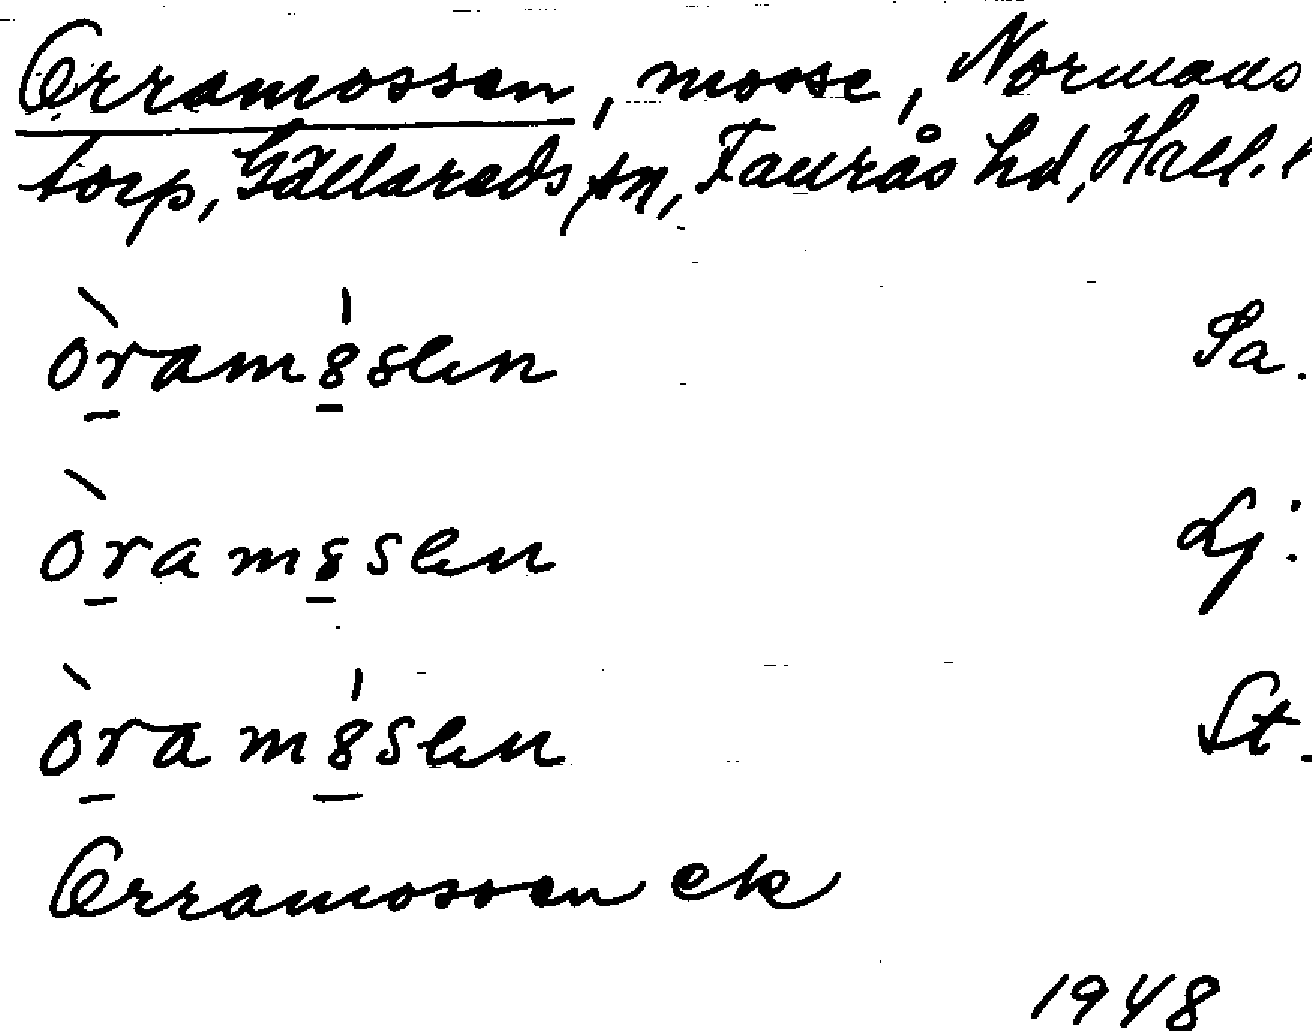 Orramossen, mosse, Normans
torp, Gällareds sn, Faurås hd, Hall. l
òramossen Sa.
òramossen Lj.
òramossen St.
Orramossen ek
1948